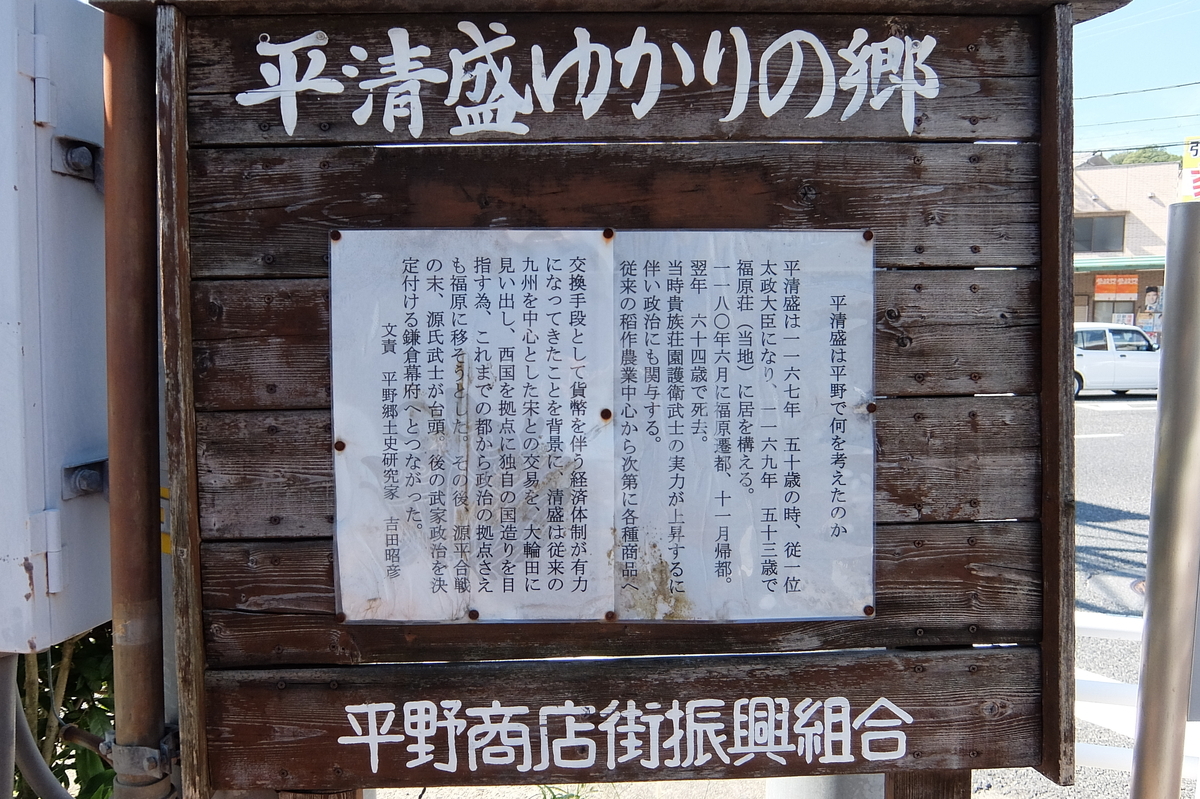 平清盛ゆかりの郷
平清盛は平野で何を考えたのか
平清盛は一一六七年　五十歳の時、従一位
太政大臣になり、一一六九年　五十三歳で
福原荘（当地）に居を構える。
一一八〇年六月に福原遷都、十一月帰都。
翌年　六十四歳で死去。
当時貴族荘園護衛武士の実力が上昇するに
伴い政治にも関与する。
従来の稲作農業中心から次第に各種商品へ
交換手段として貨幣を伴う経済体制が有力
になってきたことを背景に、清盛は従来の
九州を中心とした宋との交易を、大輪田に
見い出し、西国を拠点に独自の国造りを目
指す為、これまでの都から政治の拠点さえ
も福原に移そうとした。その後、源平合戦
の末、源氏武士が台頭。後の武家政治を決
定付ける鎌倉幕府へとつながった。
文責　平野郷土史研究家　吉田昭彦
平野商店街振興組合